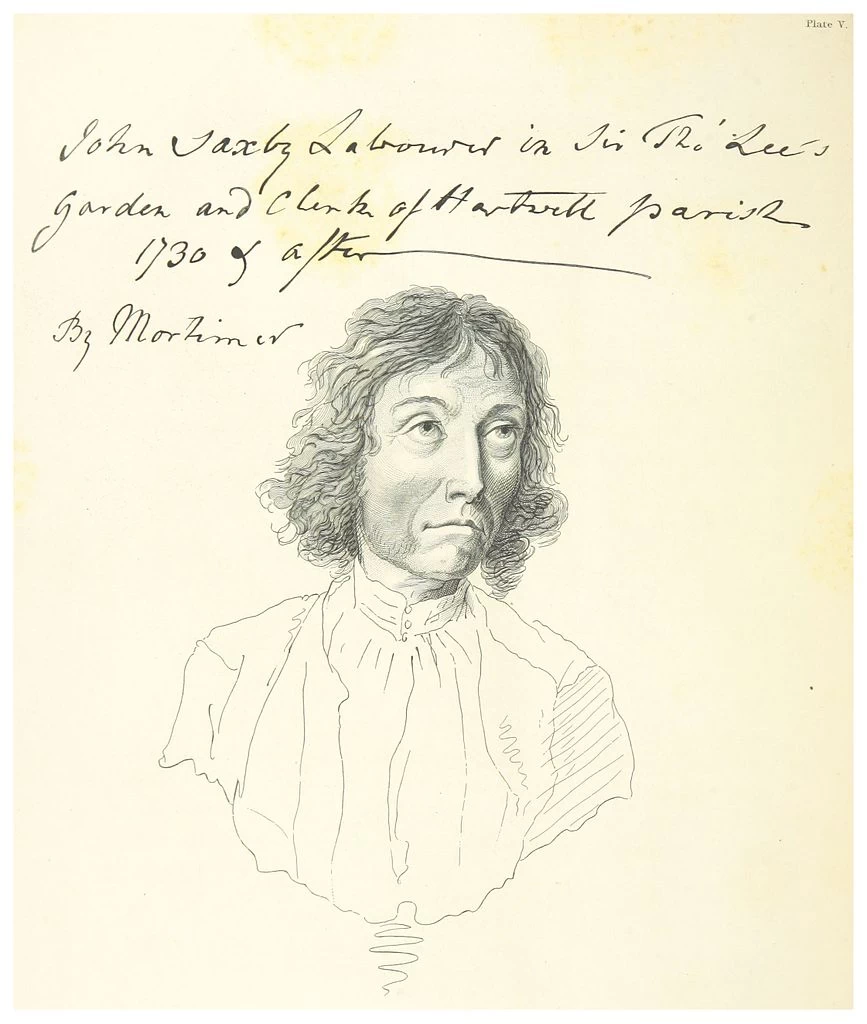 Plate V.
John Saxby Labourer in Sir Tho.' Lee's
Garden and Clerk of Hartwell parish
1730 & after
By Mortimer